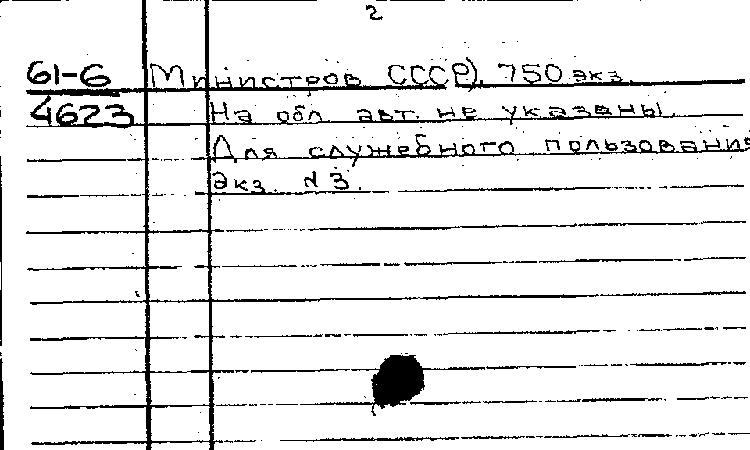 2
61-6 Министров СССР). 750 экз.
4623 На обл. авт. не указаны.
Для служебного пользования
Экз. N 3.